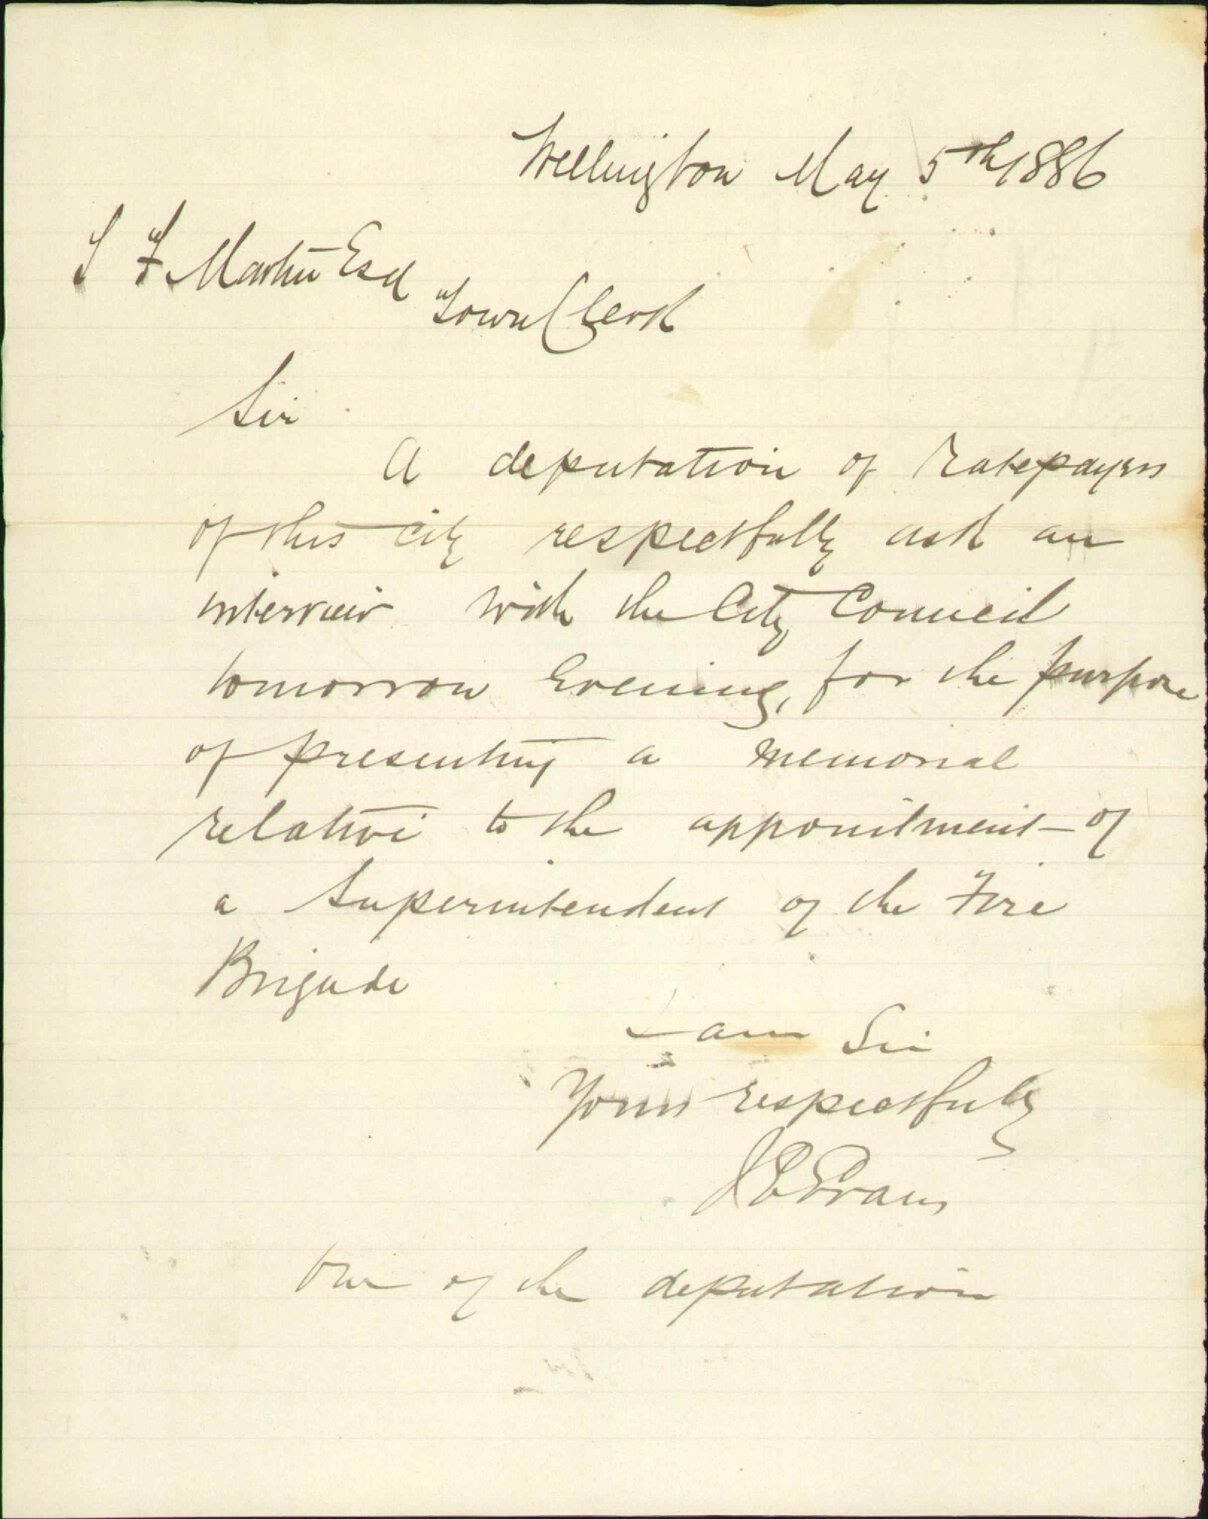 Wellington May 5th 1886
J F Martin Esq
Town Clerk
Sir
A deputation of Ratepayers
of this city respectfully ask an
interview with the City Council
tomorrow Evening, for the purpose
of presenting a memorial
relative to the appointment of
a Superintendent of the Fire
Brigade
I am Sir
Yours respectfully
J E Evans
One of the deputation